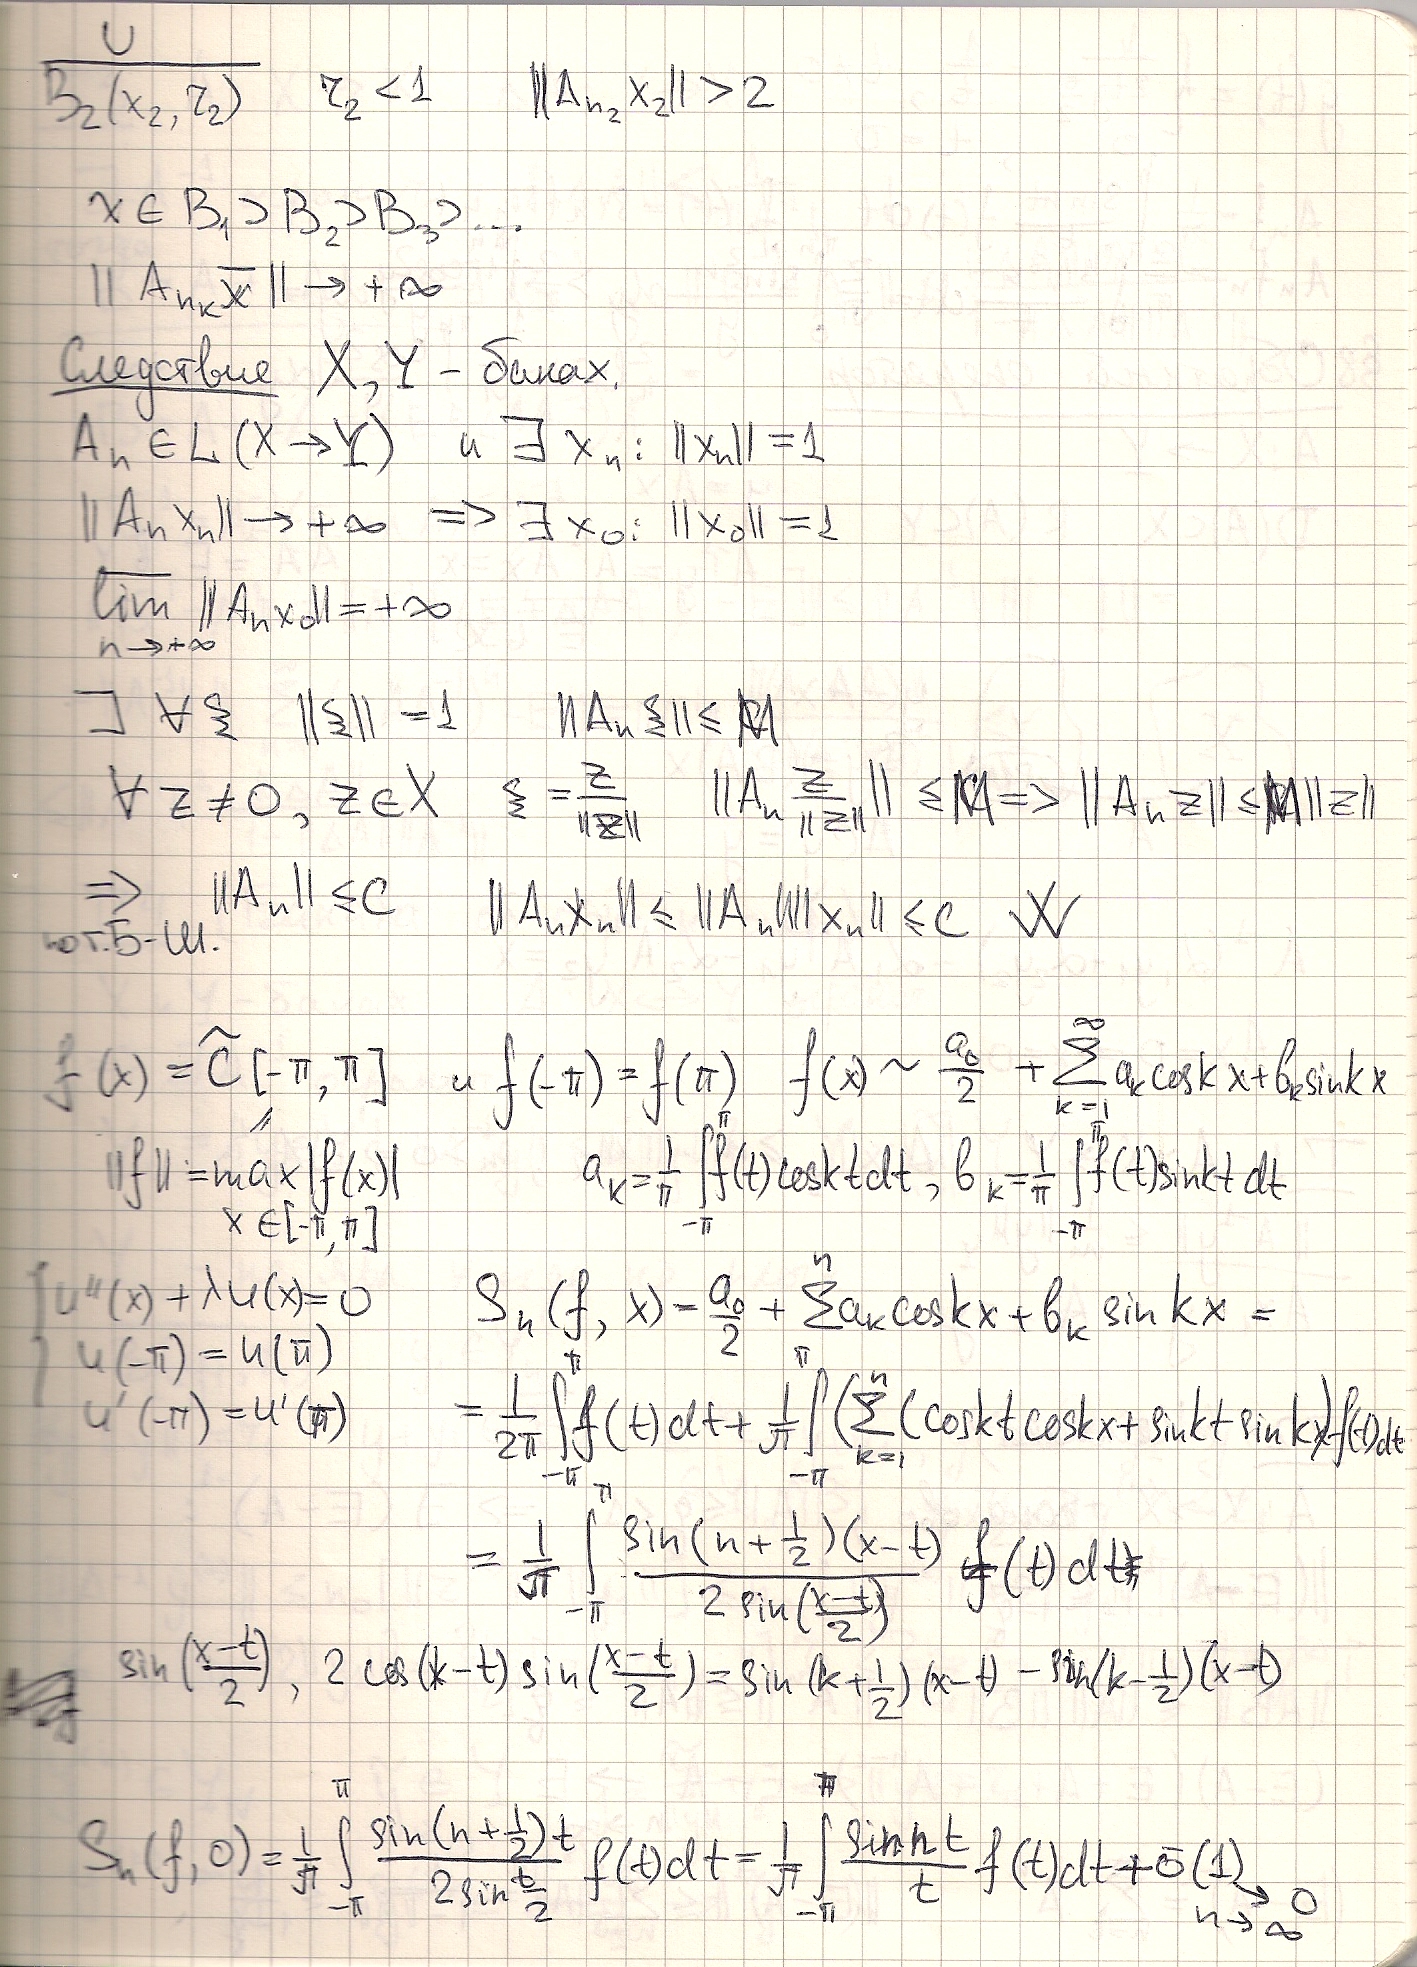 ∪
B₂(x₂, r₂) r₂ < 1 ||A_{n₂} x₂|| > 2
x ∈ B₁ ⊃ B₂ ⊃ B₃ ⊃ ...
||A_{n_k} x̄|| → +∞
Следствие X, Y – банах.
A_n ∈ L(X → Y) и ∃ x_n : ||x_n|| = 1
||A_n x_n|| → +∞ => ∃ x₀ : ||x₀|| = 1
\overline{lim}_{n→+∞} ||A_n x₀|| = +∞
] ∀ξ ||ξ|| = 1 ||A_n ξ|| ≤ M
∀ z ≠ 0, z ∈ X ξ = z/||z|| ||A_n z/||z|| || ≤ M => ||A_n z|| ≤ M||z||
=> ||A_n|| ≤ C ||A_n x_n|| ≤ ||A_n|| ||x_n|| ≤ C
по т. Б-Ш.
f(x) = C̃[-π, π] и f(-π) = f(π) f(x) ~ a₀/2 + ∑_{k=1}^{∞} a_k cos kx + b_k sin kx
||f|| = max_{x ∈ [-π, π]} |f(x)| a_k = 1/π ∫_{-π}^{π} f(t) cos kt dt, b_k = 1/π ∫_{-π}^{π} f(t) sin kt dt
u''(x) + λu(x) = 0 S_n(f, x) = a₀/2 + ∑^{n} a_k cos kx + b_k sin kx =
u(-π) = u(π)
u'(-π) = u'(π) = 1/2π ∫_{-π}^{π} f(t)dt + 1/π ∫_{-π}^{π} (∑_{k=1}^{n} (cos kt cos kx + sin kt sin kx) f(t)dt
= 1/π ∫_{-π}^{π} sin(n + 1/2)(x-t) / 2 sin((x-t)/2) f(t) dt
sin((x-t)/2), 2 cos(k-t) sin((x-t)/2) = sin(k + 1/2)(x-t) - sin(k - 1/2)(x-t)
S_n(f, 0) = 1/π ∫_{-π}^{π} sin(n + 1/2)t / 2 sin t/2 f(t)dt = 1/π ∫_{-π}^{π} sin nt / t f(t)dt + ō(1) → 0
n → ∞